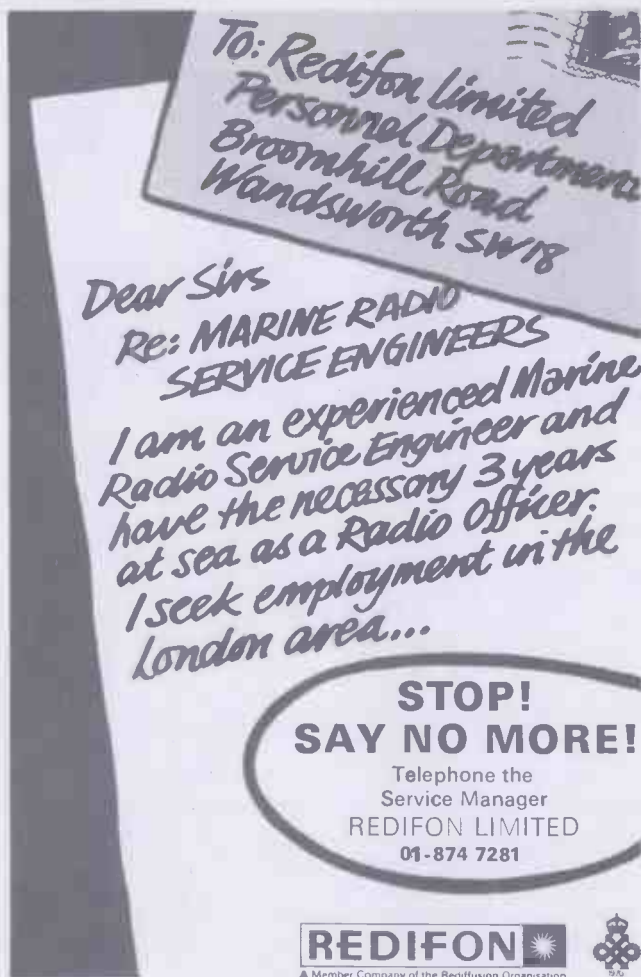 To: Redifon Limited
Personnel Department
Broomhill Road
Wandsworth SW18
Dear Sirs
Re: MARINE RADIO
SERVICE ENGINEERS
I am an experienced Marine
Radio Service Engineer and
have the necessary 3 years
at sea as a Radio Officer.
I seek employment in the
London area...
STOP!
SAY NO MORE!
Telephone the
Service Manager
REDIFON LIMITED
01-874 7281
REDIFON
A Member Company of the Rediffusion Organisation